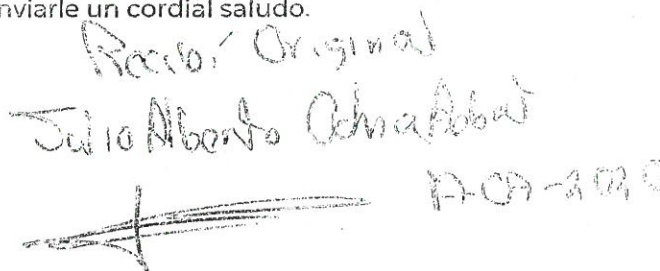 nviarle un cordial saludo.
Recibí Original
Julio Alberto Ochoa